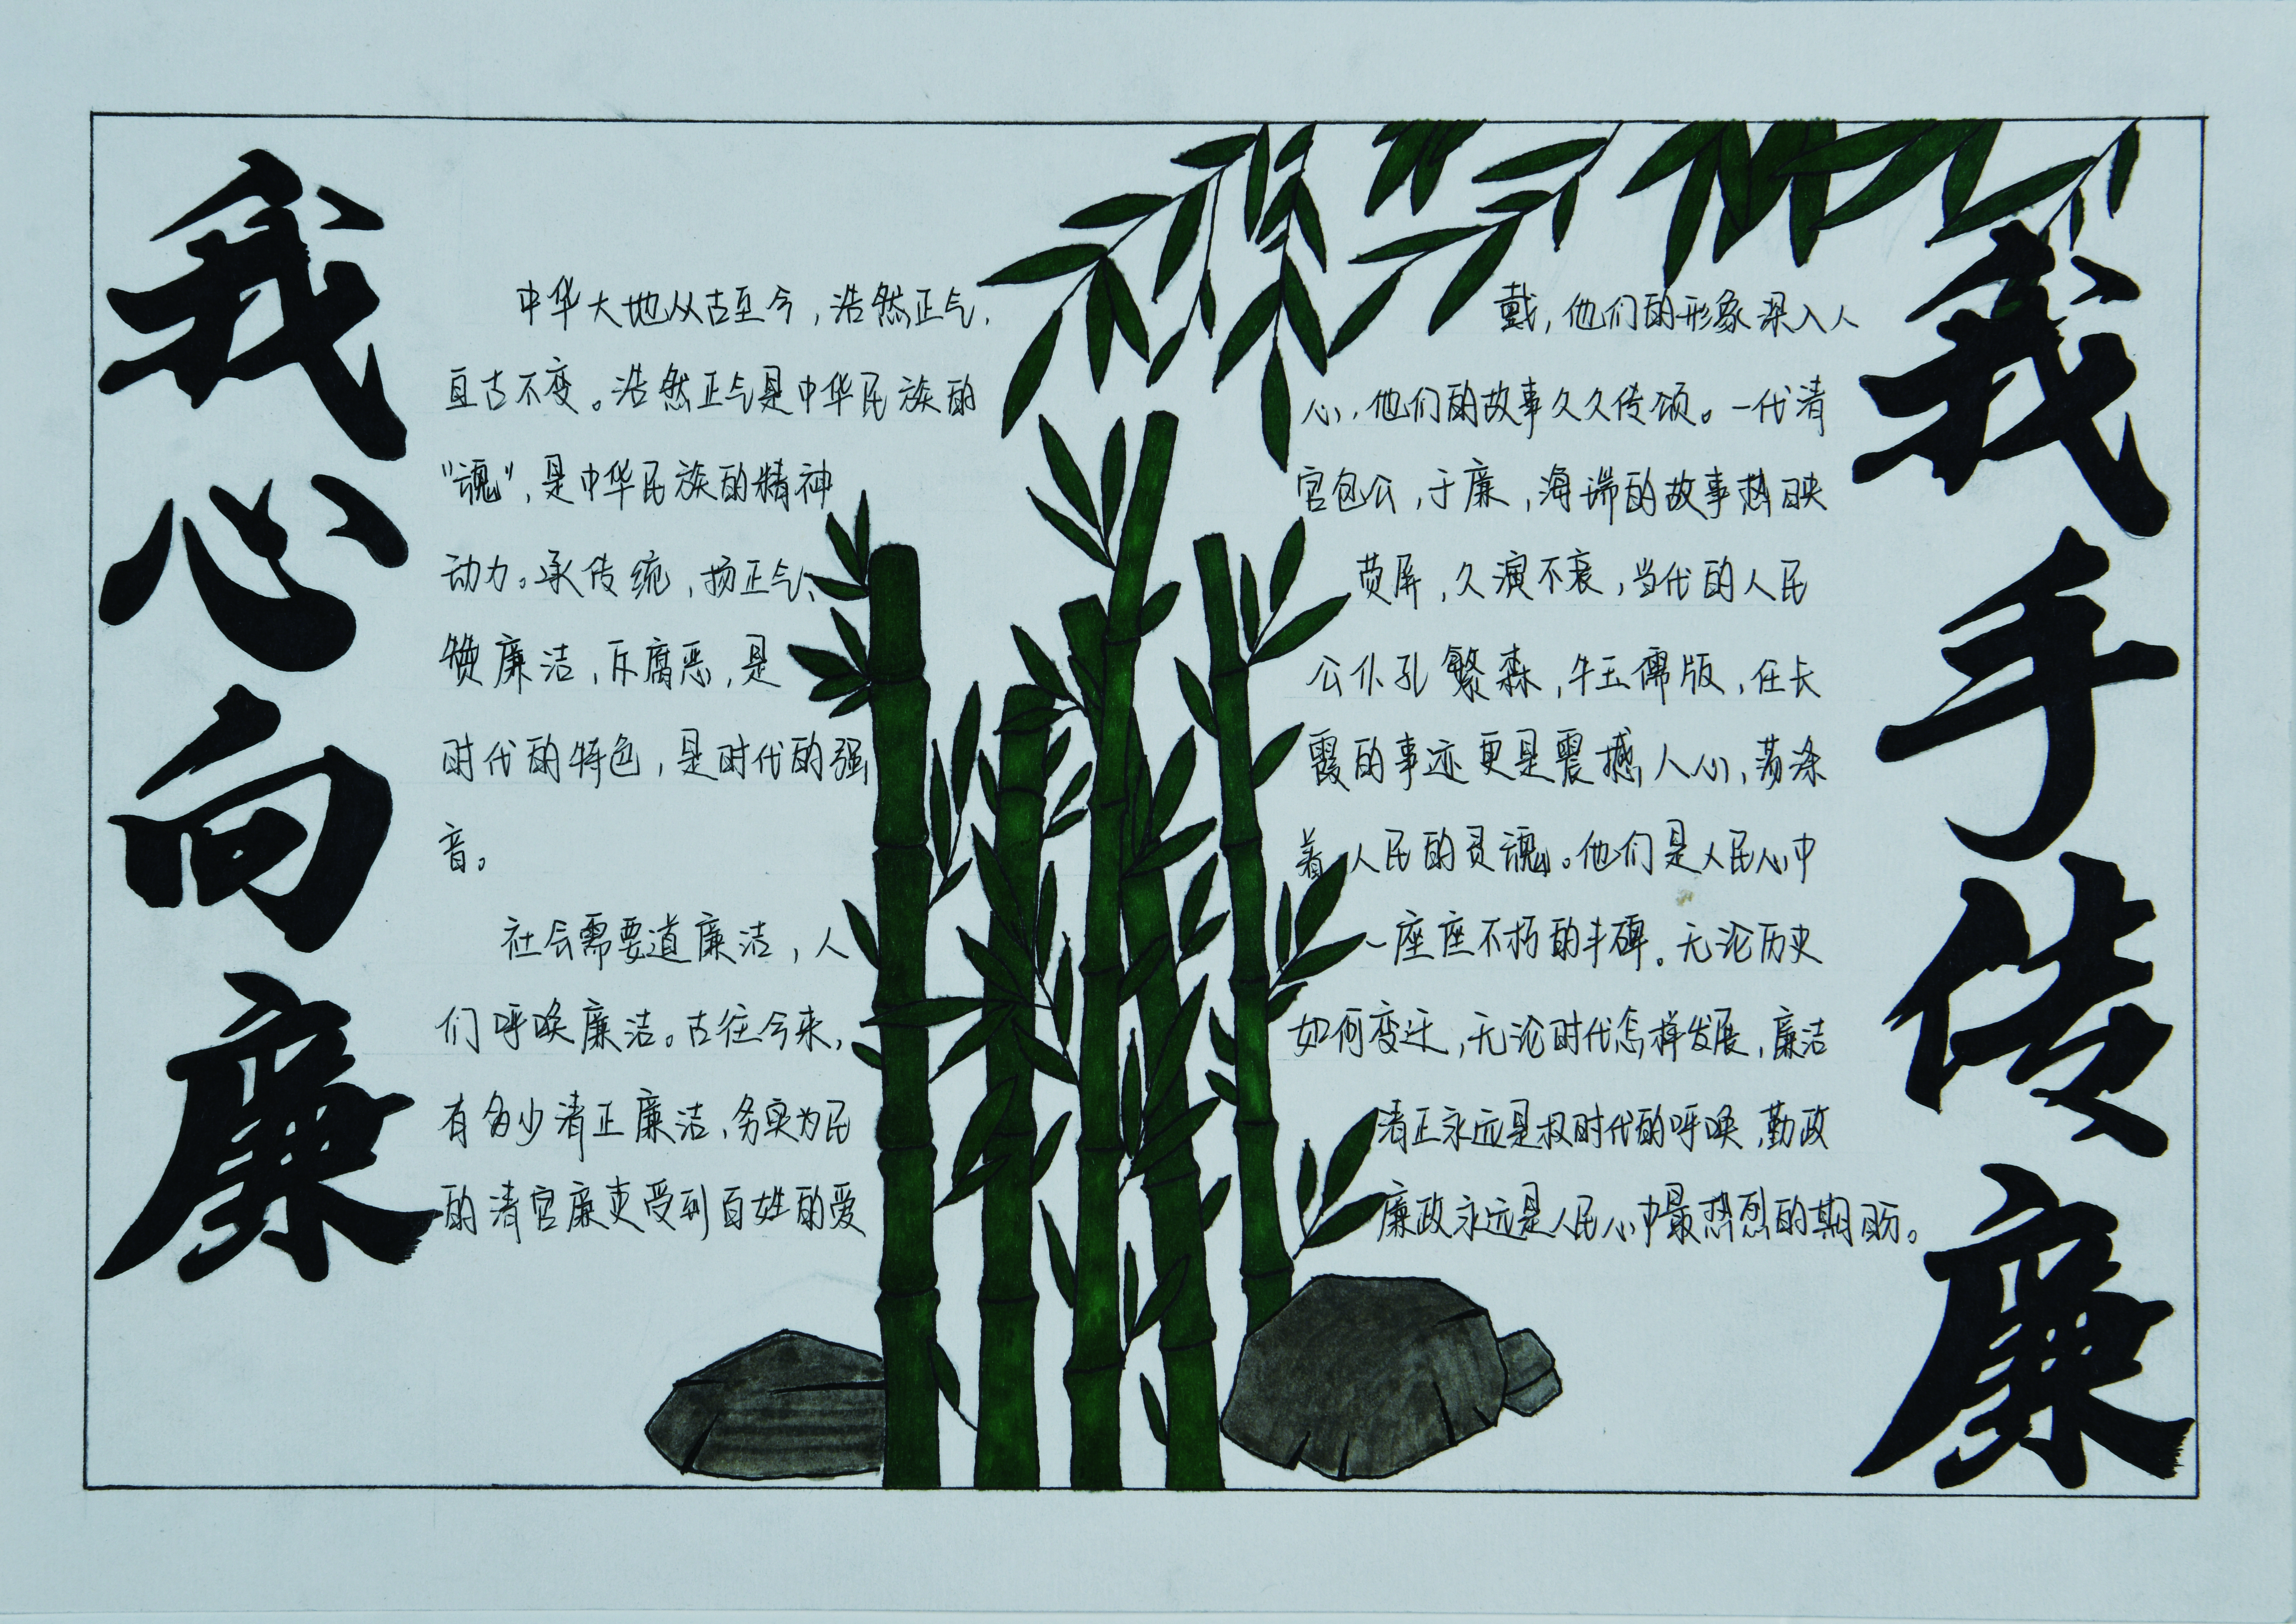 我心向廉
中华大地从古至今，浩然正气，
亘古不变。浩然正气是中华民族的
“魂”，是中华民族的精神
动力。承传统，扬正气、
赞廉洁，斥腐恶，是
时代的特色，是时代的强
音。
社会需要道廉洁，人
们呼唤廉洁。古往今来，
有多少清正廉洁，务实为民
的清官廉吏受到百姓的爱
戴，他们的形象深入人
心，他们的故事久久传颂。一代清
官包公，于廉，海瑞的故事热映
荧屏，久演不衰，当代的人民
公仆孔繁森，牛玉儒版，任长
霞的事迹更是震撼人心，荡涤
着人民的灵魂。他们是人民心中
一座座不朽的丰碑。无论历史
如何变迁，无论时代怎样发展，廉洁
清正永远是权时代的呼唤，勤政
廉政永远是人民心中最热烈的期盼。
我手传廉